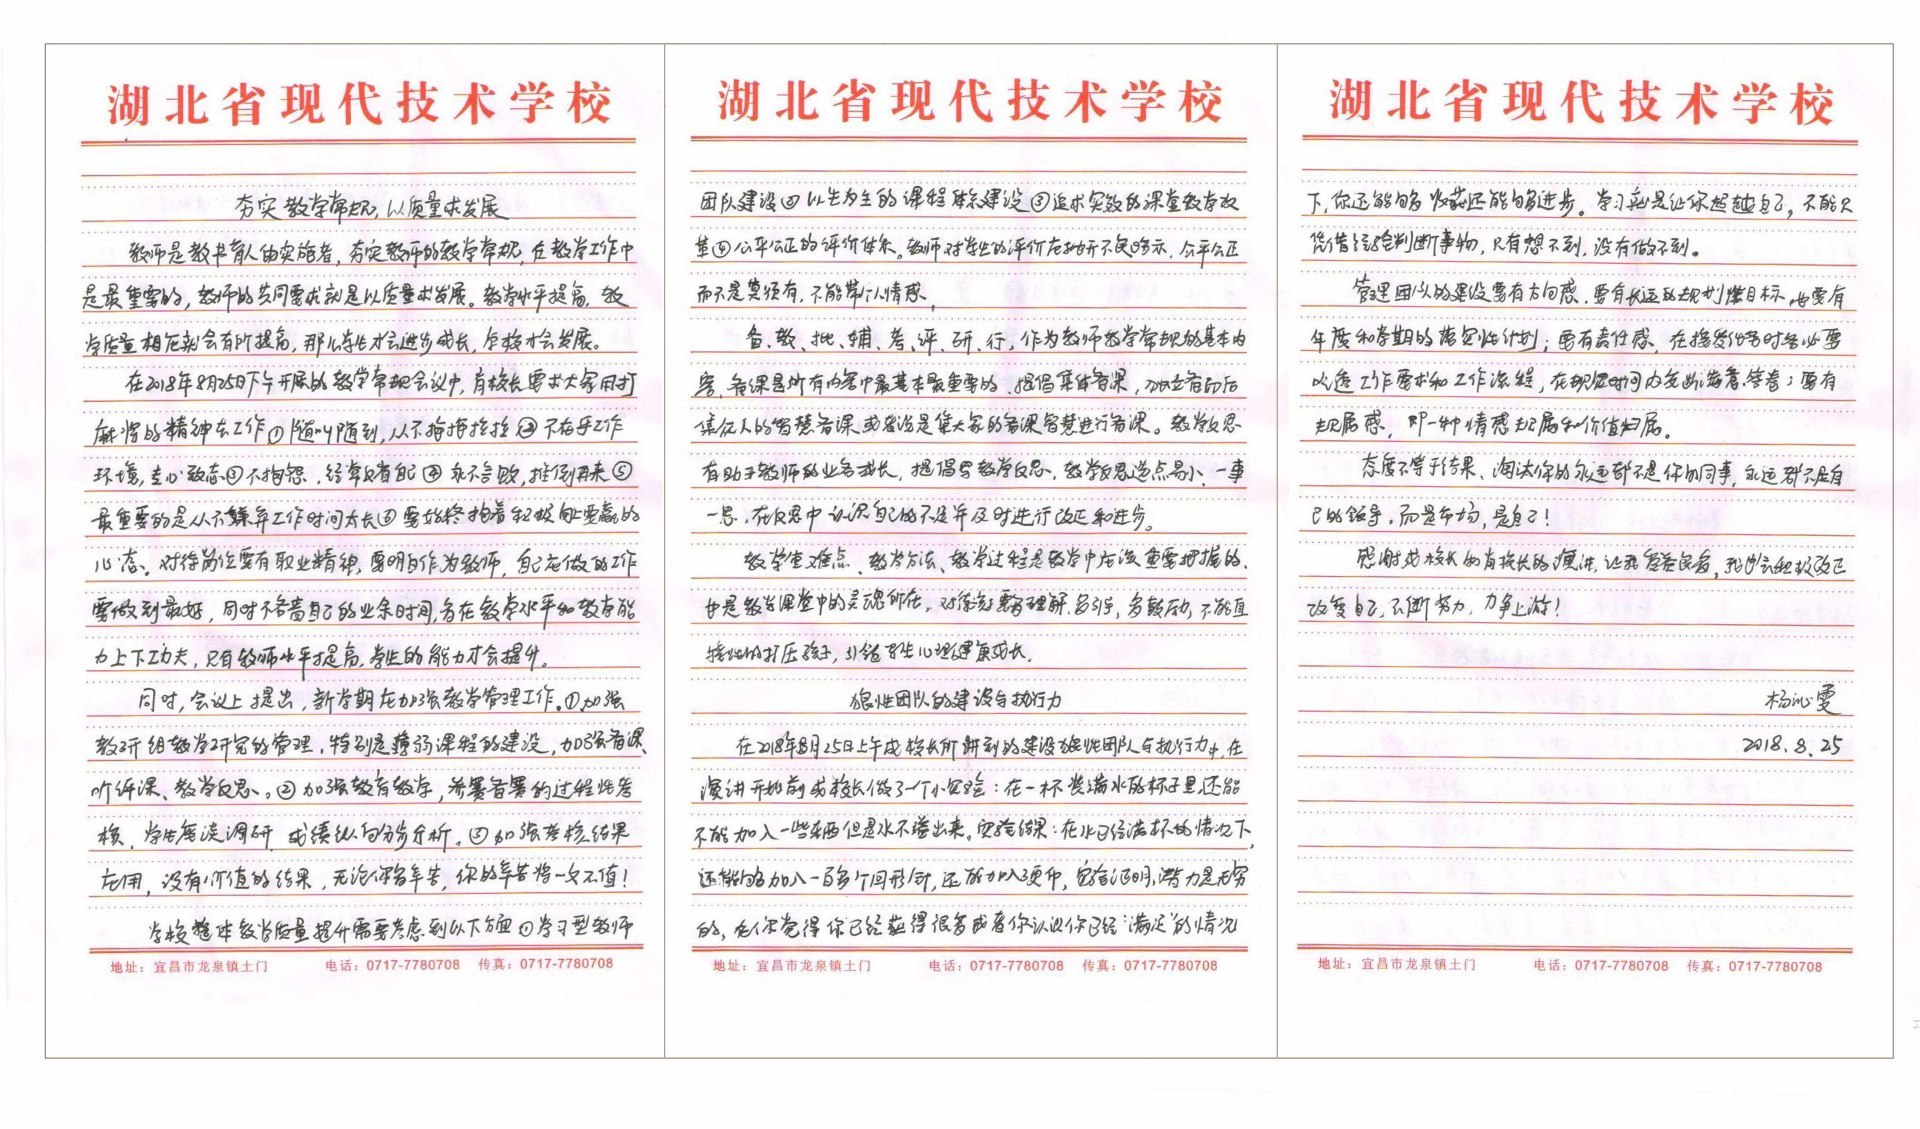 湖北省现代技术学校
夯实教学常规,以质量求发展
教师是教书育人的实施者,夯实教师的教学常规,在教学工作中
是最重要的,教师的共同要求就是以质量求发展。教学水平提高,教
学质量相应就会有所提高,那么学生才会进步成长,学校才会发展。
在2018年8月25日下午开展的教学常规会议中,肖校长要求大家用打
麻将的精神去工作①随叫随到,从不拖拖拉拉②不在乎工作
环境,专心致志③不抱怨,经常反省自己④永不言败,推倒再来⑤
最重要的是从不嫌弃工作时间太长⑥要始终抱着积极向上要赢的
心态。对待岗位要有职业精神,要明白作为教师,自己应做的工作
要做到最好,同时不吝啬自己的业余时间,多在教学水平和教育能
力上下功夫,只有教师水平提高,学生的能力才会提升。
同时,会议上提出,新学期应加强教学管理工作。①加强
教研组教学研究的管理,特别是薄弱课程的建设,加强备课、
听评课、教学反思。②加强教育教学,竞赛备赛的过程性考
核,学生座谈调研,成绩纵向分步分析。③加强考核结果
应用,没有价值的结果,无论你多辛苦,你的辛苦将一文不值!
学校整体教学质量提升需要考虑到以下方面①学习型教师
地址:宜昌市龙泉镇土门 电话:0717-7780708 传真:0717-7780708
湖北省现代技术学校
团队建设②以生为主的课程体系建设③追求实效的课堂教学改
革④公平公正的评价体系。教师对学生的评价应抛开不良暗示,公平公正
而不是莫须有,不能带个人情感。
备、教、批、辅、考、评、研、行,作为教师教学常规的基本内
容,备课是所有内容中最基本最重要的,提倡集体备课,
集众人的智慧备课或者说是集大家的备课智慧进行备课。教学反思
有助于教师的业务成长,提倡写教学反思,教学反思选点易小,一事
一思,在反思中认识自己的不足并及时进行改正和进步。
教学重难点、教学方法、教学过程是教学中应该重要把握的,
也是教学课堂中的灵魂所在,对待学生要多理解,多引导,多鼓励,不能直
接性的打压孩子,引领学生心理健康成长。
狼性团队的建设与执行力
在2018年8月25日上午成校长所讲到的建设狼性团队与执行力中,在
演讲开始前成校长做了一个小实验:在一杯装满水的杯子里,还能
不能加入一些东西但是水不溢出来。实验结果:在水已经满杯的情况下,
还能够加入一百多个回形针,还能加入硬币,实验证明,潜力是无穷
的,在你觉得你已经获得很多或者你认识你已经“满足”的情况
地址:宜昌市龙泉镇土门 电话:0717-7780708 传真:0717-7780708
湖北省现代技术学校
下,你还能够收获还能够进步。学习就是让你超越自己,不能只
凭借经验判断事物,只有想不到,没有做不到。
管理团队的建设要有方向感,要有长远的规划性目标,也要有
年度和学期的落实性计划;要有责任感,在接受任务时务必要
吃透工作要求和工作流程,在规定时间内交出满意答卷;要有
归属感,即一种情感归属和价值归属。
态度不等于结果、淘汰你的永远都不是你的同事,永远都不是自
己的领导,而是市场,是自己!
感谢成校长和肖校长的演讲,让我受益良多,我也会积极改正
改变自己,不断努力,力争上游!
杨沁雯
2018.8.25
地址:宜昌市龙泉镇土门 电话:0717-7780708 传真:0717-7780708